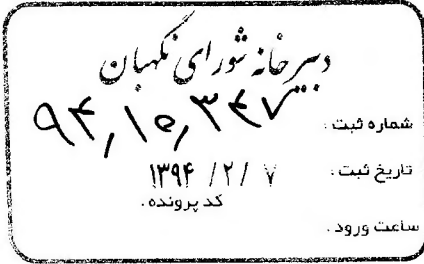 دبیرخانه شورای نگهبان
شماره ثبت : ۹۴٫۱۵٫۳۴۷
تاریخ ثبت : ۱۳۹۴ / ۲ / ۷
کد پرونده .
ساعت ورود .